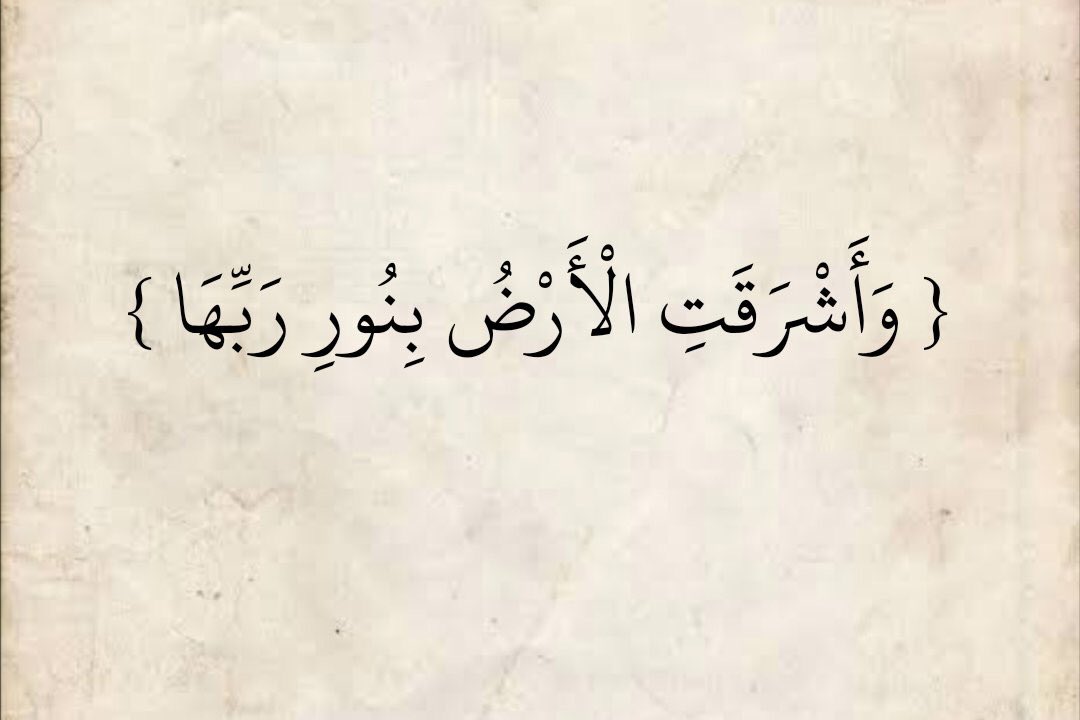 { وَأَشْرَقَتِ الْأَرْضُ بِنُورِ رَبِّهَا }